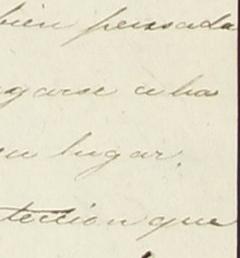 bien pensada
garse a las
su lugar.
teccion que